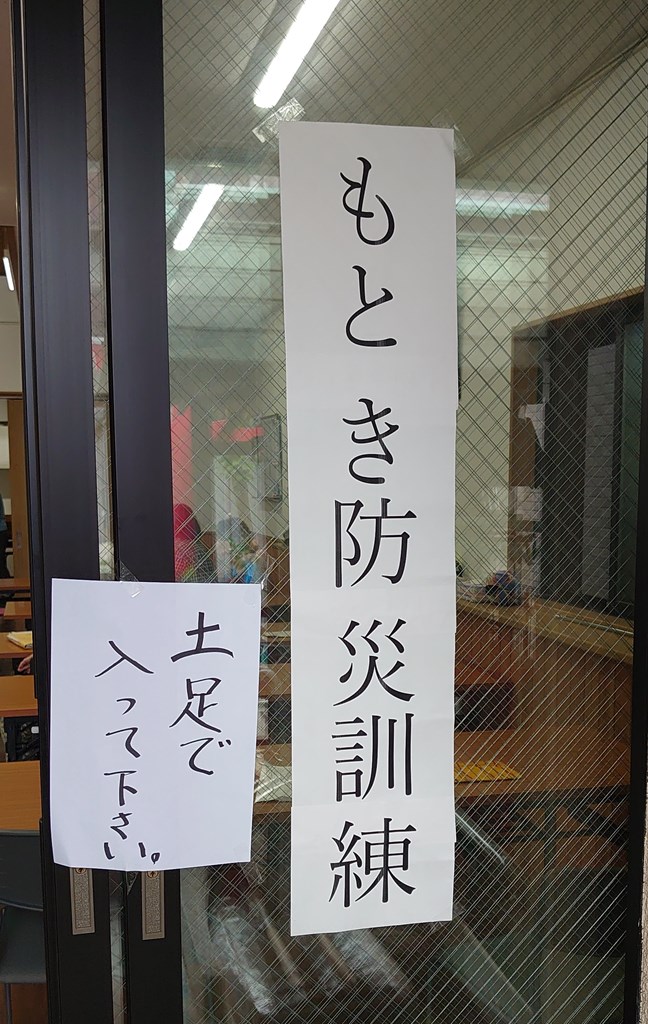 もとき防災訓練
土足で
入って下さい。